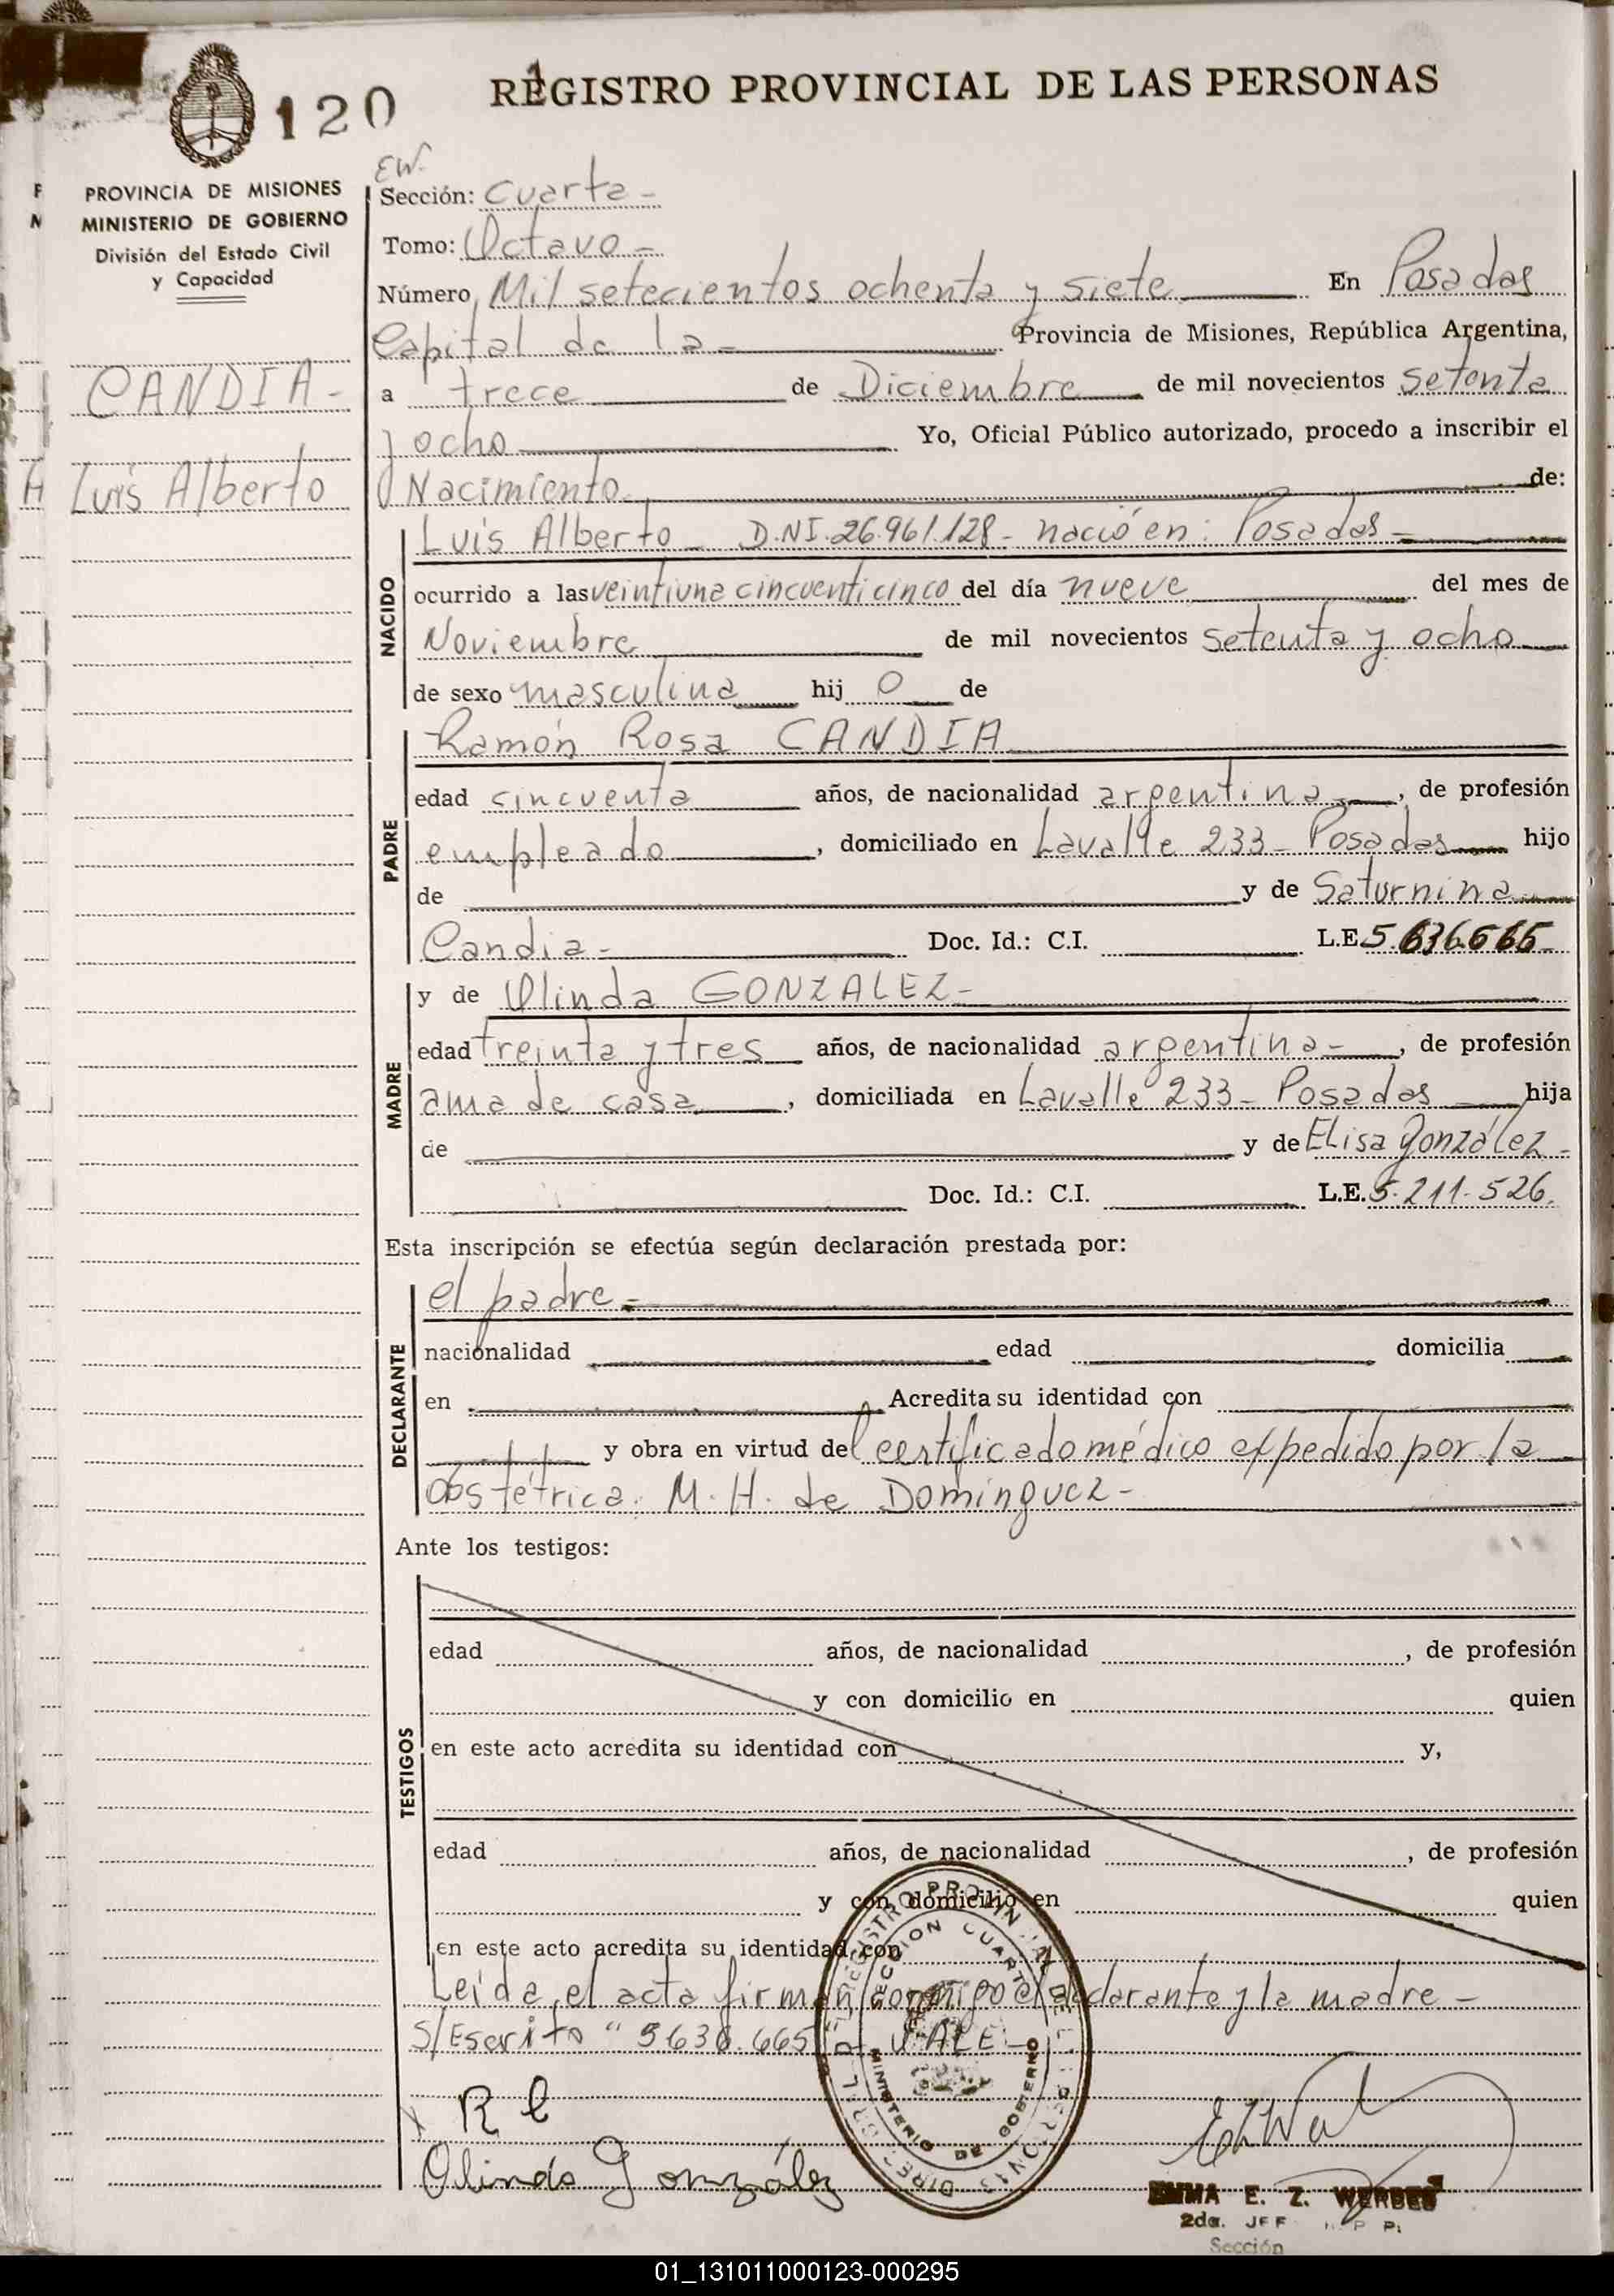 120
REGISTRO PROVINCIAL DE LAS PERSONAS
PROVINCIA DE MISIONES
MINISTERIO DE GOBIERNO
División del Estado Civil
y Capacidad
CANDIA-
Luis Alberto
EW.
Sección: Cuarta-
Tomo: Octavo-
Número Mil setecientos ochenta y siete En Posadas
Capital de la- Provincia de Misiones, República Argentina,
a trece de Diciembre de mil novecientos setenta
y ocho Yo, Oficial Público autorizado, procedo a inscribir el
Nacimiento de:
NACIDO
Luis Alberto- D.N.I. 26.961.128- nació en: Posadas-
ocurrido a las veintiuna cincuenticinco del día nueve del mes de
Noviembre de mil novecientos setenta y ocho
de sexo masculino hij o de
PADRE
Ramón Rosa CANDIA
edad cincuenta años, de nacionalidad argentina, de profesión
empleado, domiciliado en Lavalle 233- Posadas hijo
de y de Saturnina
Candia- Doc. Id.: C.I. L.E. 5.636.665
MADRE
y de Olinda GONZALEZ-
edad treinta y tres años, de nacionalidad argentina-, de profesión
ama de casa, domiciliada en Lavalle 233- Posadas hija
de y de Elisa González-
Doc. Id.: C.I. L.E. 5.211.526.
Esta inscripción se efectúa según declaración prestada por:
DECLARANTE
el padre-
nacionalidad edad domicilia
en Acredita su identidad con
y obra en virtud del certificado médico expedido por la
obstétrica M. H. de Dominguez-
Ante los testigos:
TESTIGOS
edad años, de nacionalidad, de profesión
y con domicilio en quien
en este acto acredita su identidad con y,
edad años, de nacionalidad, de profesión
y con domicilio en quien
en este acto acredita su identidad con
Leida el acta firman conmigo el declarante y la madre-
S/Escrito "5636.665" VALE-
SECCION CUARTA
MINISTERIO DE GOBIERNO
R C
Olinda González
EMMA E. Z. WERBES
2da. JEF
Sección
01_131011000123-000295